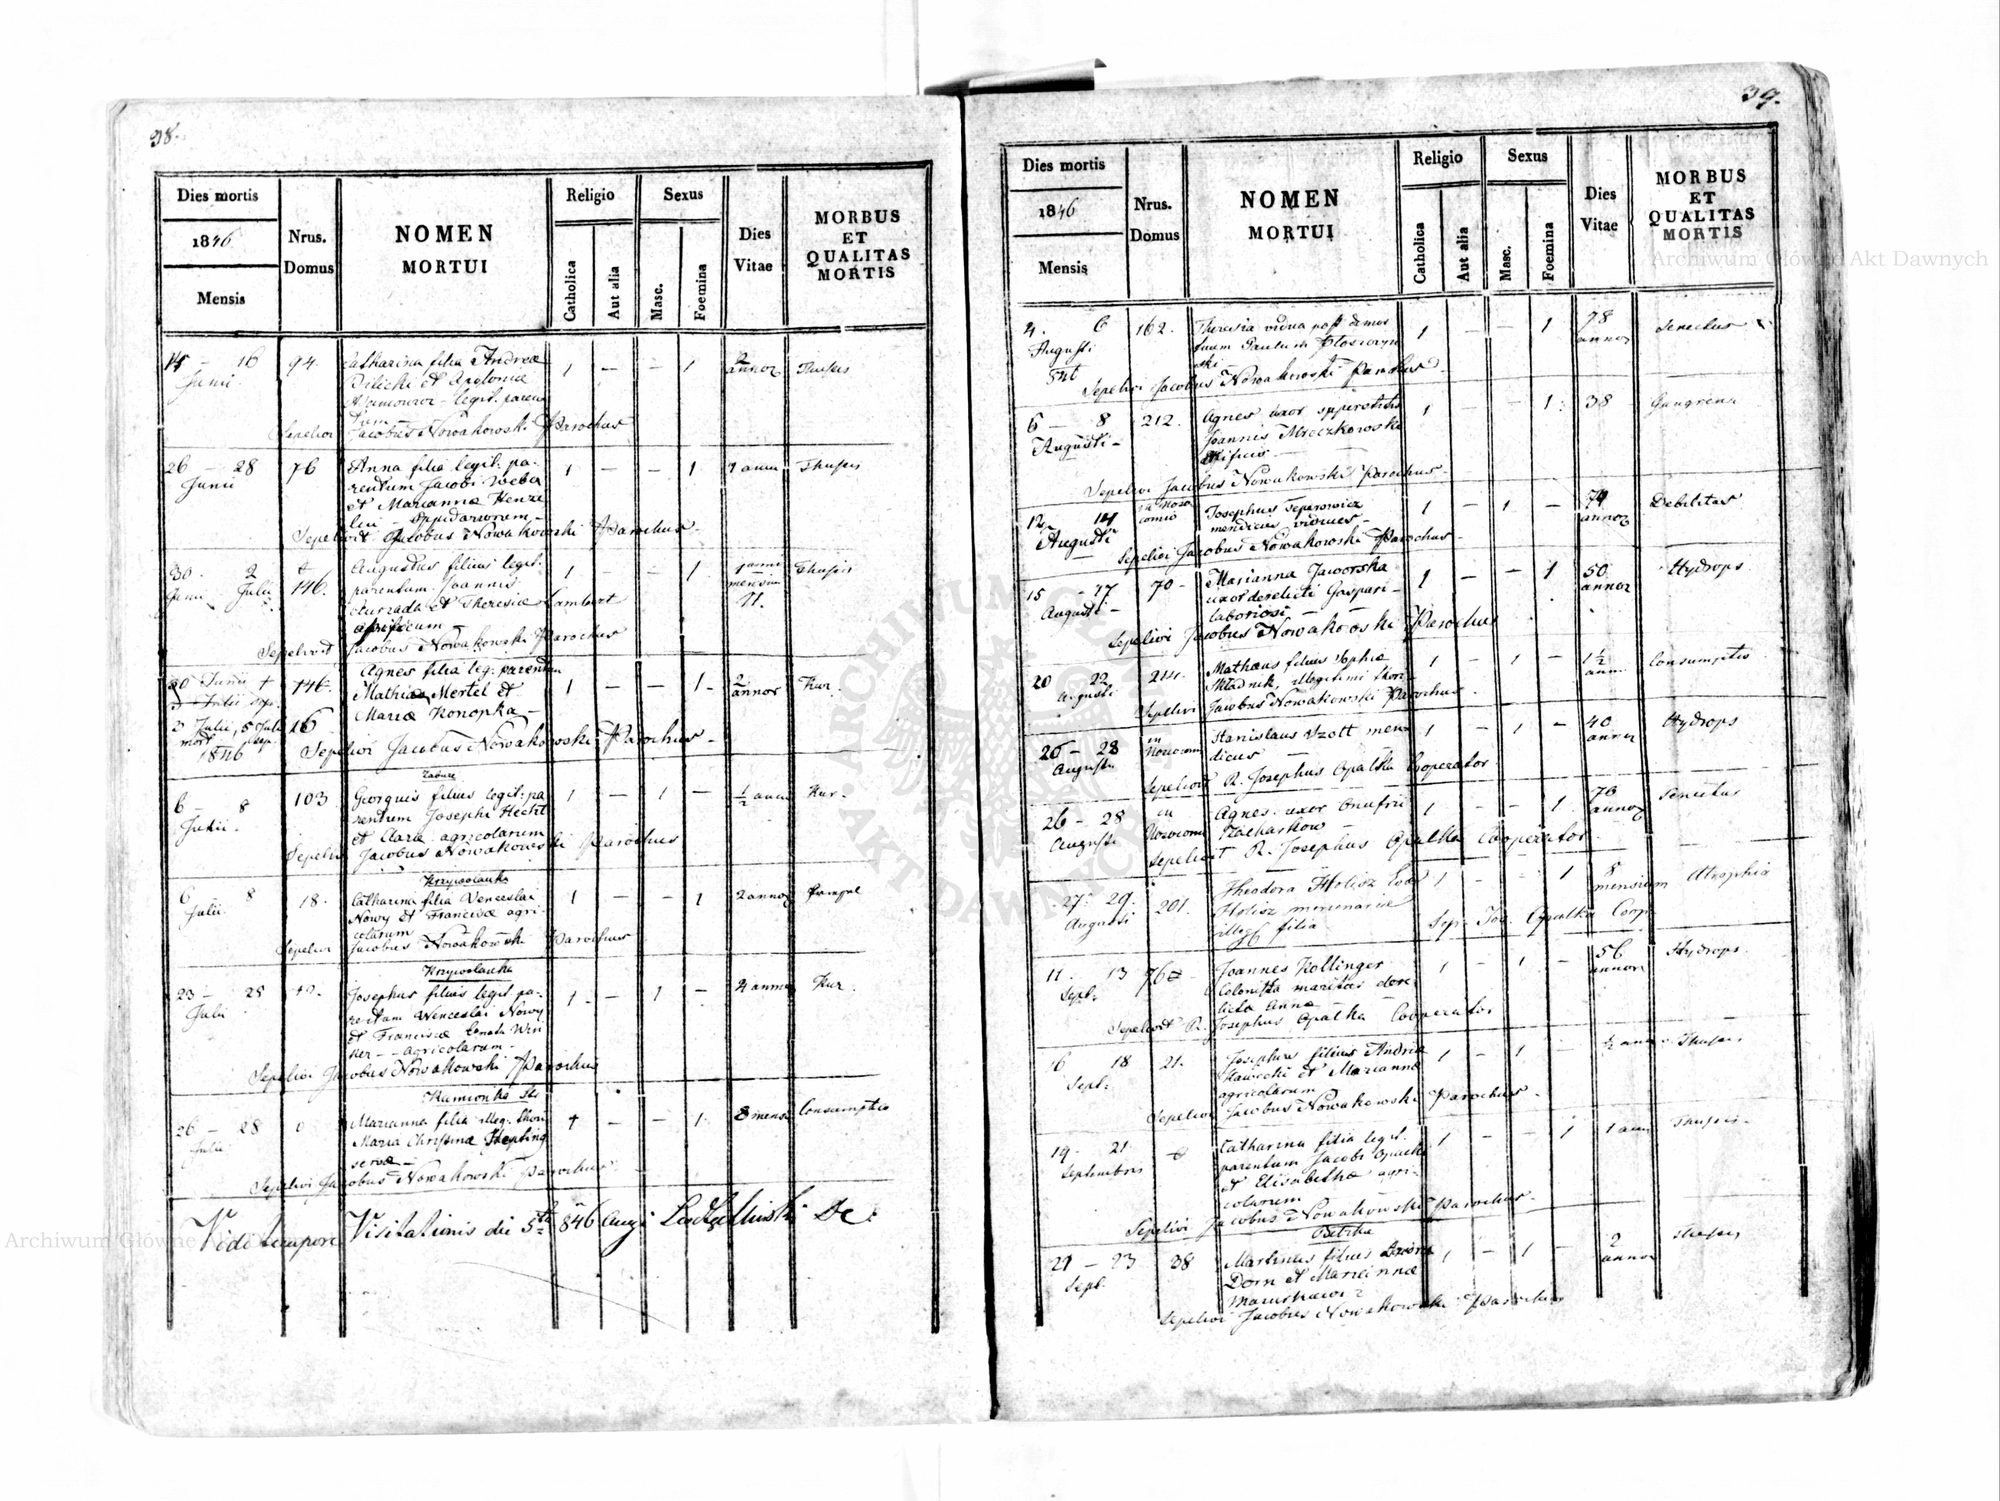 38.
Dies mortis
1846
Mensis
Nrus.
Domus
NOMEN
MORTUI
Religio
Catholica
Aut alia
Sexus
Masc.
Foemina
Dies
Vitae
MORBUS
ET
QUALITAS
MORTIS
14 - 16 94. Catharina filia Andreae 1 — — 1 2 Thusis
Junii annor
et Apolonia
legit. paren
tum
Sepelivi Jacobus Nowakowski Parochus
26 - 28 76 Anna filia legit. pa- 1 — — 1 1 anni Thusis
Junii rentum Jacobi Weba
et Marianna Henze
lui - Oppidanorum -
Sepelivit Jacobus Nowakowski Parochus -
30. 2 146. Augustus filius legit. 1 — — 1 1 anni Thusis
Junii Julii parentum Joannis mensium
et Theresiae Lambert 11.
opificum -
Sepelivit Jacobus Nowakowski Parochus
Agnes filia leg. parentum
30 Junii 146. Mathiae Mertel et 1 — — 1 2 annor Kur.
Mariae Konopka -
2 Julii, 5 Julii 16
1846 Sepelivi Jacobus Nowakowski Parochus -
6 - 8 103 Georgius filius legit. pa 1 — 1 — ½ anni Kur.
Julii rentum Josephi Hecht
et Clara agricolarum
Sepelivi Jacobus Nowakowski Parochus
Krzywolanka
6 8 18. Catharina filia Venceslai 1 — — 1 2 annor
Julii Nowy et Francisca agri-
colarum
Sepelivi Jacobus Nowakowski Parochus
Krzywolanka
23 - 25 12. Josephus filius legit. pa- 1 — 1 — 4 annor Kur.
Julii rentum Wenceslai Nowy
et Francisca
agricolarum -
Sepelivi Jacobus Nowakowski Parochus
Kamionka
26 - 28 0 Marianna filia illeg. thori 1 — — 1. 8 mens Consumptio
Julii Maria Christina Hepting
serva -
Sepelivi Jacobus Nowakowski Parochus
Vidi tempore Visitationis die 5ta 846 Aug
39.
Dies mortis
1846
Mensis
Nrus.
Domus
NOMEN
MORTUI
Religio
Catholica
Aut alia
Sexus
Masc.
Foemina
Dies
Vitae
MORBUS
ET
QUALITAS
MORTIS
4. 6 162. Theresia vidua post demor 1 — — 1 78 Senectus
Augusti tuum Paulum annor
846 ski
Sepelivi Jacobus Nowakowski Parochus
6 - 8 212. Agnes uxor superstitis 1 — — 1. 38 Gangrena
Augusti - Joannis Mroczkowski
opificis -
Sepelivi Jacobus Nowakowski Parochus -
12 14 in Noso Josephus Teperowicz 1 — 1 — 74 Debilitas
Augusti comio mendicus viduus - annor
Sepelivi Jacobus Nowakowski Parochus -
15 - 17 70 - Marianna Jaworska 1 — — 1 50 Hydrops
Augusti - uxor derelicti Gaspari - annor
laboriosi -
Sepelivi Jacobus Nowakowski Parochus
20 22 214. Mathaeus filius Sophia 1 — 1 — 1½ Consumptio
Augusti Skladnik, illegitimi thori anni
Sepelivi Jacobus Nowakowski Parochus -
26 - 28 in Stanislaus Szott men 1 — 1 — 40 Hydrops
Augusti Nosocom dicus annor
Sepelivit R. Josephus Opalka Cooperator
26 - 28 in Agnes uxor Onufrii 1 — — 1 76 Senectus
Augusti Nosocomi Zacharkow annor
Sepelivit R. Josephus Opalka Cooperator
27. 29. 201. Theodora Holisz 1 — — 1 8 Atrophia
Augusti Holisz mensium
illeg. filia Sep. Jos. Opalka Coop.
11. 13 76 Joannes Kollinger 1 — 1 — 56 Hydrops
Sept. Colonista maritus dere annor
licta Anna
Sepelivit R. Josephus Opalka Cooperator
16 18 21. Josephus filius Andrea 1 — 1 — ½ anni Thusis
Sept. Hawecki et Marianna
agricolarum
Sepelivi Jacobus Nowakowski Parochus -
19 - 21. Catharina filia legit. 1 — — 1 1 anni Thusis -
Septembris parentum Jacobi
et Elisabetha agri-
colarum
Sepelivi Jacobus Nowakowski Parochus -
21 - 23 38 Martinus filius 1 — 1 — 2 Thusis
Sept. Dorn et Marianna annor
Sepelivi Jacobus Nowakowski Parochus
Archiwum Główne Akt Dawnych
ARCHIWUM GŁÓWNE AKT DAWNYCH